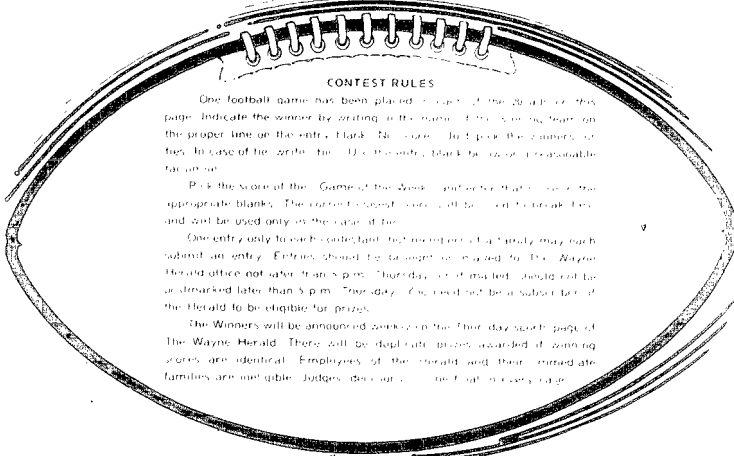 CONTEST RULES
One football game has been placed in each of the 20 ads on this
page. Indicate the winner by writing in the name of the winning team on
the proper line on the entry blank. No scores. Just pick the winners, or
ties. In case of tie, write "tie." Use the entry blank below or a reasonable
facsimile.
Pick the score of the "Game of the Week" and enter that score in the
appropriate blanks. The correct closest score will be used to break ties
and will be used only in the case of tie.
One entry only to each contestant, but members of a family may each
submit an entry. Entries should be brought or mailed to The Wayne
Herald office not later than 5 p.m. Thursday, or if mailed, should not be
postmarked later than 5 p.m. Thursday. You need not be a subscriber of
the Herald to be eligible for prizes.
The Winners will be announced weekly on the Thursday sports page of
The Wayne Herald. There will be duplicate prizes awarded if winning
scores are identical. Employees of the Herald and their immediate
families are ineligible. Judges' decisions final in every case.